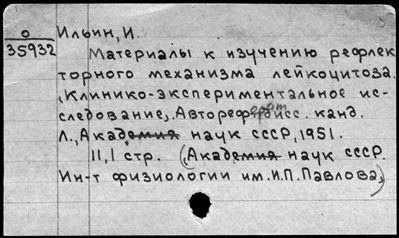 О Ильин, И.
35932 Материалы к изучению рефлек
торного механизма лейкоцитоза.
„Клинико-экспериментальное ис-
следование". Автореферат дисс. канд.
Л., Академия наук СССР, 1951.
11,1 стр. (Академия наук СССР.
Ин-т физиологии им. И.П. Павлова)